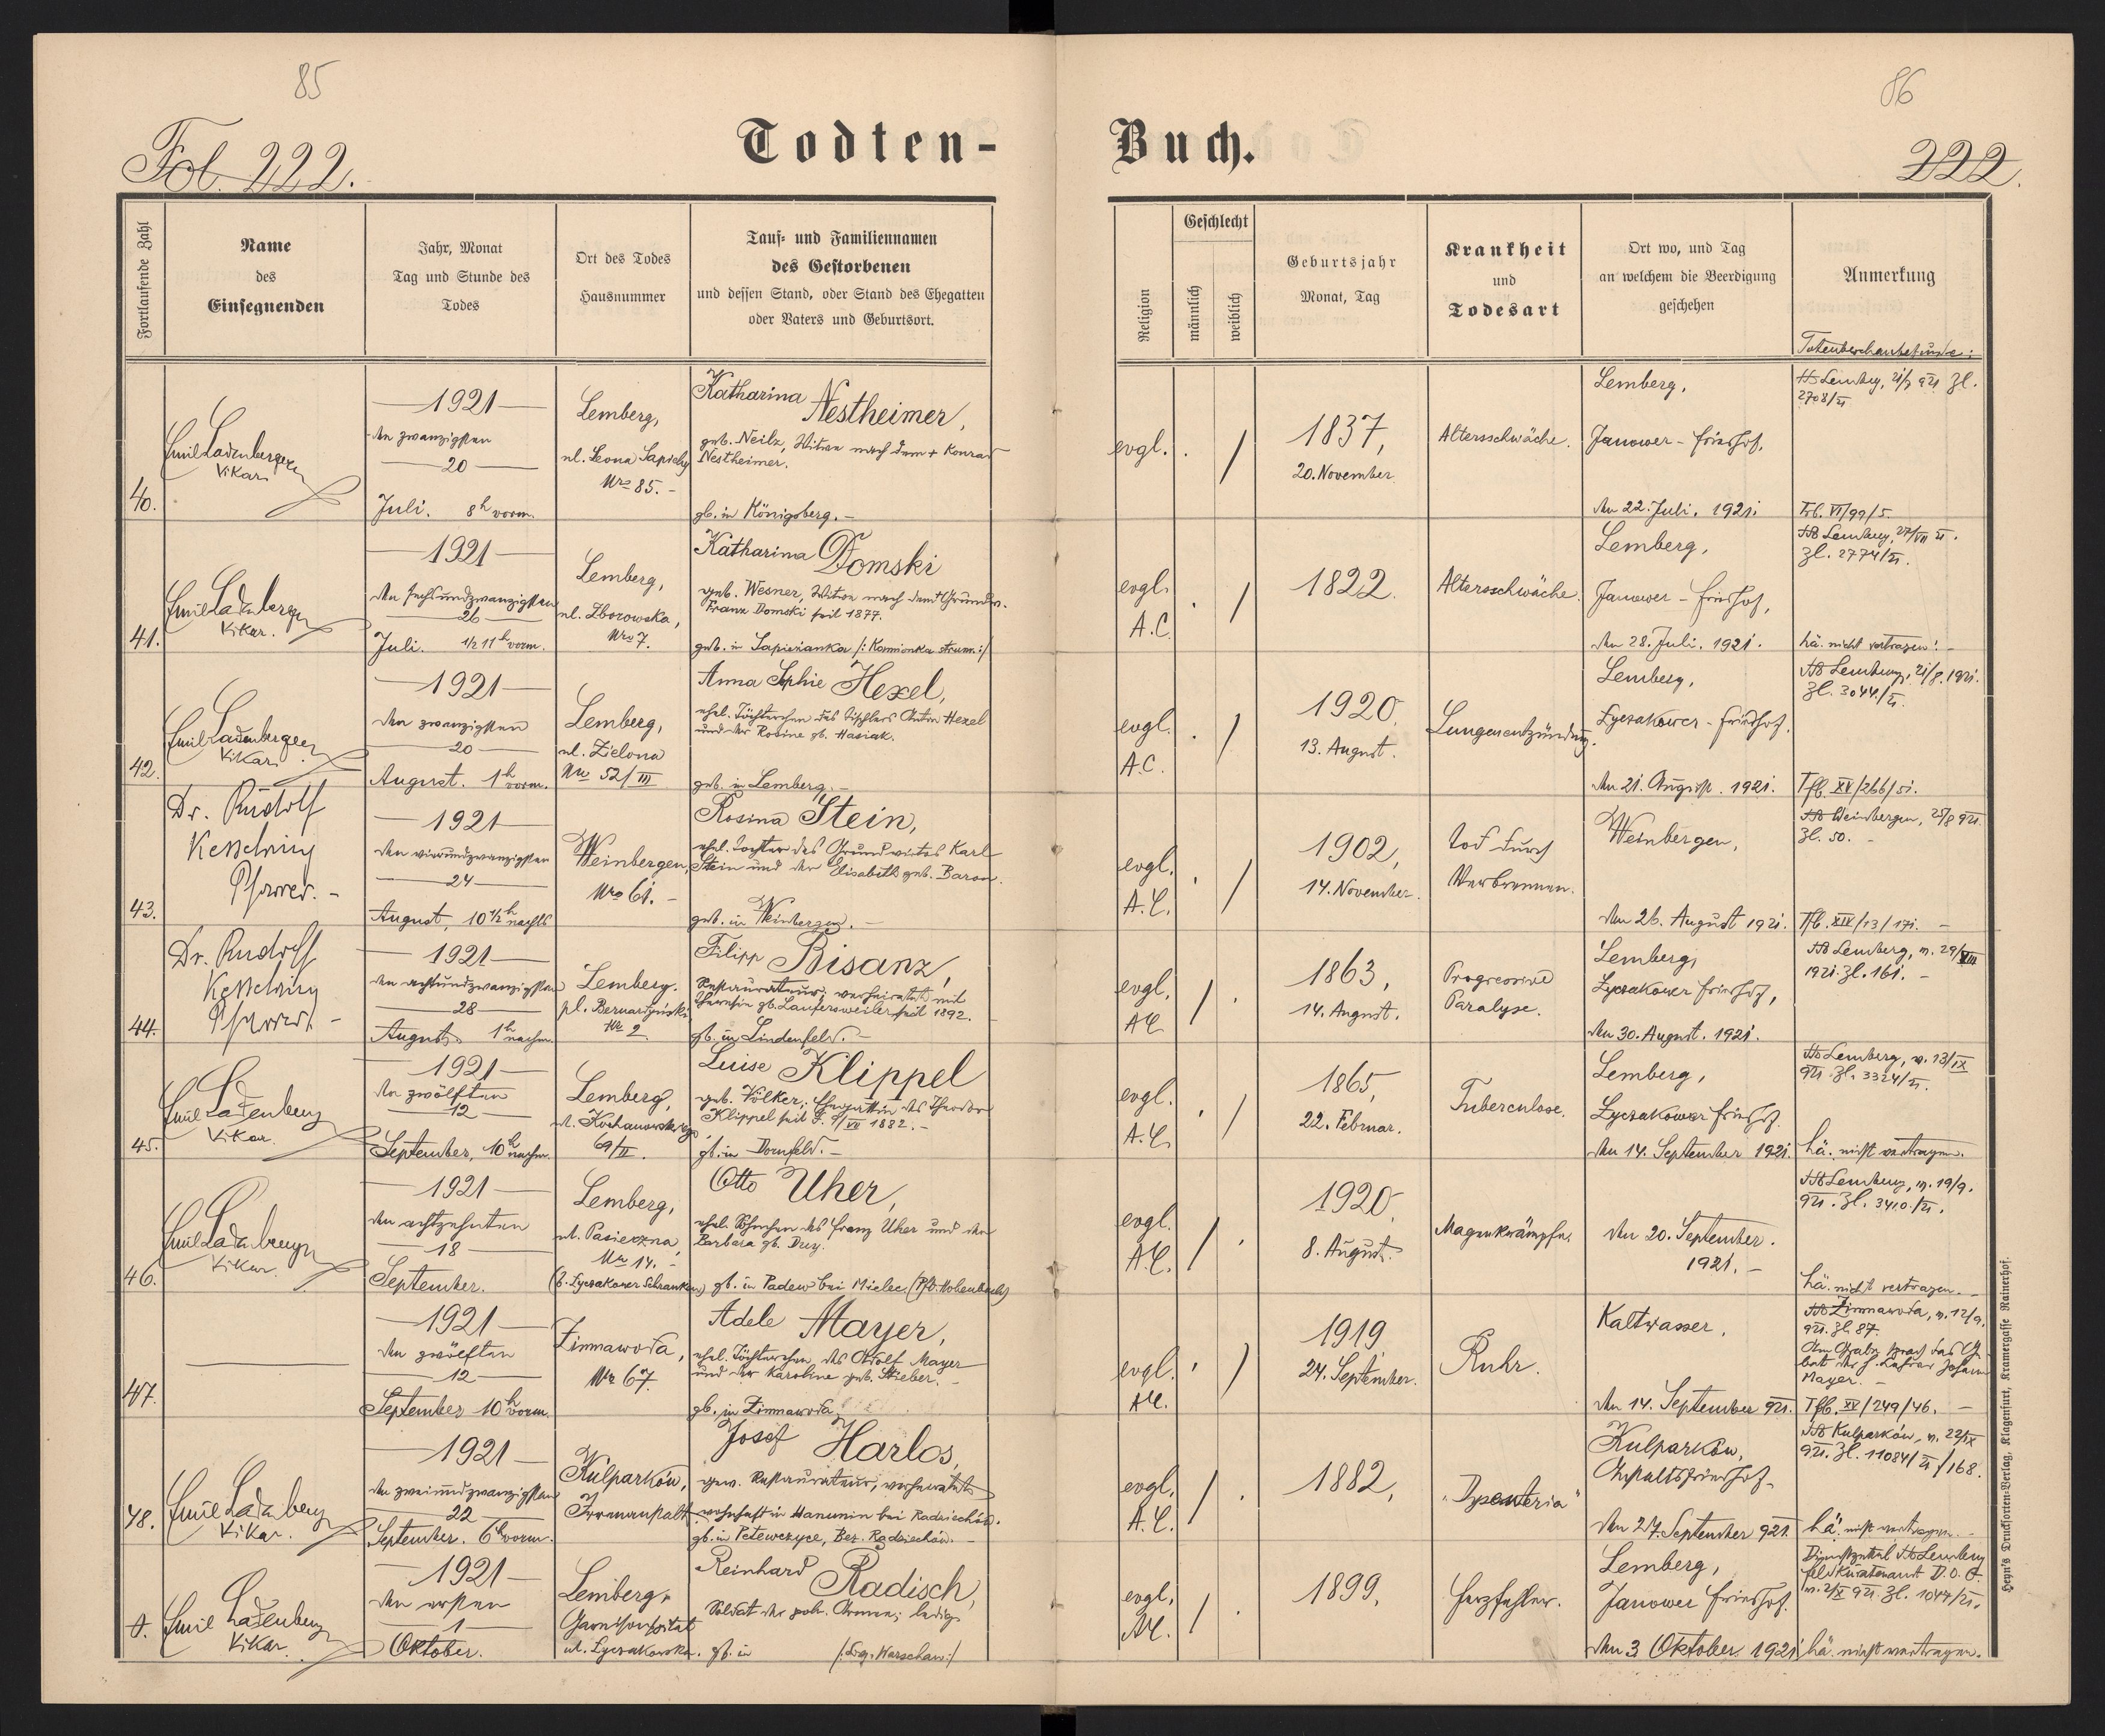 85
86
Todten-
Buch.
Fol. 222.
222.
Fortlaufende Zahl
Name
des
Einsegnenden
Jahr, Monat
Tag und Stunde des
Todes
Ort des Todes
Hausnummer
Tauf- und Familiennamen
des Gestorbenen
und dessen Stand, oder Stand des Ehegatten
oder Vaters und Geburtsort.
Religion
Geschlecht
männlich
weiblich
Geburtsjahr
Monat, Tag
Krankheit
und
Todesart
Ort wo, und Tag
an welchem die Beerdigung
geschehen
Anmerkung
40.
Emil Ladenberger
Vikar.
1921
den zwanzigsten
20
Juli. 8h vorm.
Lemberg,
ul. Leona Sapiehy
Nro 85.-
Katharina Nestheimer,
geb. Neilz, Witwe nach dem + Konrad
Nestheimer.
gb. in Königsberg.-
evgl.
1837,
20. November
Altersschwäche.
Lemberg,
Janower-Friedhof,
den 22. Juli. 1921.
2708/21
41.
Emil Ladenberger
Vikar.
1921
den sechsundzwanzigsten
26
Juli. 1/2 11h vorm.
Lemberg,
ul. Zborowska,
Nro 7.
Katharina Domski
geb. Wesner, Witwe nach dem + Grundw.
Franz Domski seit 1877.
geb. in Sapiezanka /: Kamionka strum.:/
evgl.
A.C.
1822.
Altersschwäche.
Lemberg,
Janower-Friedhof,
den 28. Juli. 1921.
Lemberg, 27/VII 21.
Zl. 2774/21.
hä. nicht vertragen!
42.
Emil Ladenberger
Vikar
1921
den zwanzigsten
20
August. 1h vorm.
Lemberg,
ul. Zielona
Nro 52/III
Anna Sophie Hexel,
ehel. Töchterchen des Tischlers Anton Hexel
und der Rosine gb. Hasiak.
geb. in Lemberg.-
evgl.
A.C.
1920,
13. August.
Lungenentzündung.
Lemberg,
Lyczakower-Friedhof,
den 21. August. 1921.
Zl. 3044/21.
Tfb. XV/266/51.
43.
Dr. Rudolf
Kesselring
Pfarrer.-
1921
den vierundzwanzigsten
24
August, 10 1/2h nachts
Weinbergen,
Nro 61.-
Rosina Stein,
ehel. Tochter des Grundwirtes Karl
Stein und der Elisabeth geb. Baron.
geb. in Weinbergen.-
evgl.
A.C.
1902,
14. November.
Tod durch
Verbrennen.
Weinbergen,
den 26. August 1921.
Weinbergen, 25/8 921.
Zl. 50.-
Tfb. XIV/13/171.-
44.
Dr. Rudolf
Kesselring
Pfarrer.-
1921
den achtundzwanzigsten
28
August. 1h nachm.
Lemberg.
pl. Bernardyński
Nr 2
Filipp Bisanz,
Restaurateur, verheiratet mit
Theresia gb. Laufersweiler seit 1892.
gb. in Lindenfeld.-
evgl.
AC
1863,
14. August.
Progressive
Paralyse.
Lemberg,
Lyczakower Friedhof,
den 30. August. 1921.
Lemberg, v. 29/VIII
1921. Zl. 161.-
45.
Emil Ladenberg
Vikar.
1921
den zwölften
12
September, 10h nachm.
Lemberg,
69/II.
Luise Klippel
geb. Völker, Ehegattin des Theodor
gb. in Dornfeld.-
evgl.
A.C.
1865,
22. Februar.
Tuberculose.
Lemberg,
Lyczakower Friedhof.
den 14. September 1921.
Lemberg, v. 13/IX
921. Zl. 3324/21.
hä. nicht vertragen.
46.
Emil Ladenberger
Vikar.
1921
den achtzehnten
18
September.
Lemberg,
ul. Pasieczna,
Nro 14.-
(b. Lyczakower Schranken)
Otto Uher,
ehel. Söhnchen des Franz Uher und der
gb. in Padew bei Mielec. (Pfd. Hohenbach)
evgl.
A.C.
1920,
8. August.
Magenkrämpfe.
den 20. September.
1921.-
Lemberg, v. 19/9.
921. Zl. 3410/21.
hä. nicht vertragen.-
47.
1921
den zwölften
12
September 10h vorm.
Zimnawoda,
Nr 67.
Adele Mayer,
ehel. Töchterchen des Adolf Mayer
und der Karoline geb. Stieber.-
gb. in Zimnawoda
evgl.
AC.
1919
24. September.
Ruhr.
Kaltwasser,
den 14. September 921.
Zimnawoda, v. 12/9.
921. Zl. 87.
Mayer.-
Tfb. XV/249/46.-
48.
Emil Ladenberg
Vikar.
1921
den zweiundzwanzigsten
22
September. 6h vorm.
Kulparków,
Irrenanstalt
Josef Harlos,
gew. Restaurateur, verheiratet
wohnhaft in Hanunin bei Radziechów.
gb. in Petewczyce, Bez. Radziechów.-
evgl.
A.C.
1882,
"Dysenteria"
Kulparków,
Anstaltsfriedhof.
den 27. September 921.
Kulparków, v. 22/IX
921. Zl. 11084/21/168.
hä. nicht vertragen.-
Emil Ladenberg
Vikar.
1921
den ersten
1
Oktober.
Lemberg,
Garnisonsspital
ul. Lyczakowska.
Reinhard Radisch,
Soldat der poln. Armee, ledig
gb. in /: Geg. Warschau:/
evgl.
AC.
1899,
Herzfehler.
Lemberg,
Janower Friedhof.
den 3. Oktober 1921.
hä. nicht vertragen.
Heyn's Drucksorten-Verlag, Klagenfurt, Kramergasse Rainerhof.